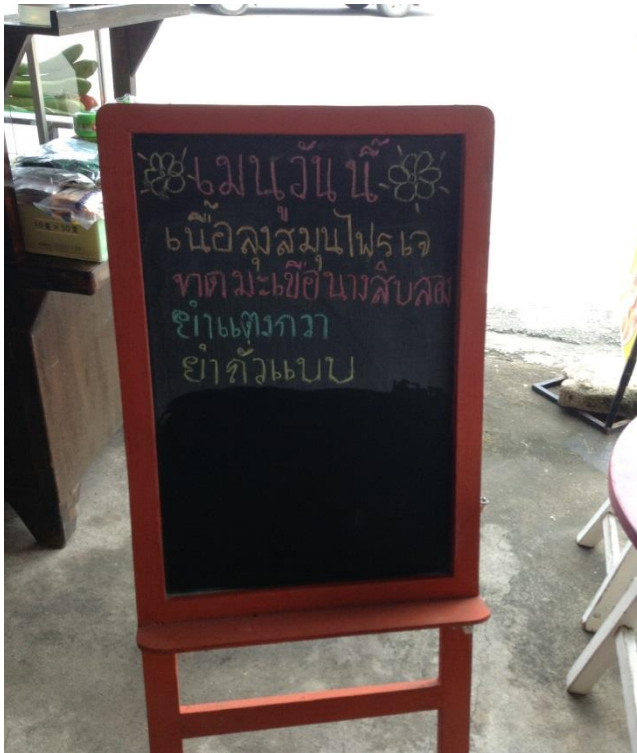 เมนูวันนี้
เนื้อลุงสมุนไพรเจ
ขาดมะเขือนางสิบสอง
ยำแตงกวา
ยำถั่วแบบ